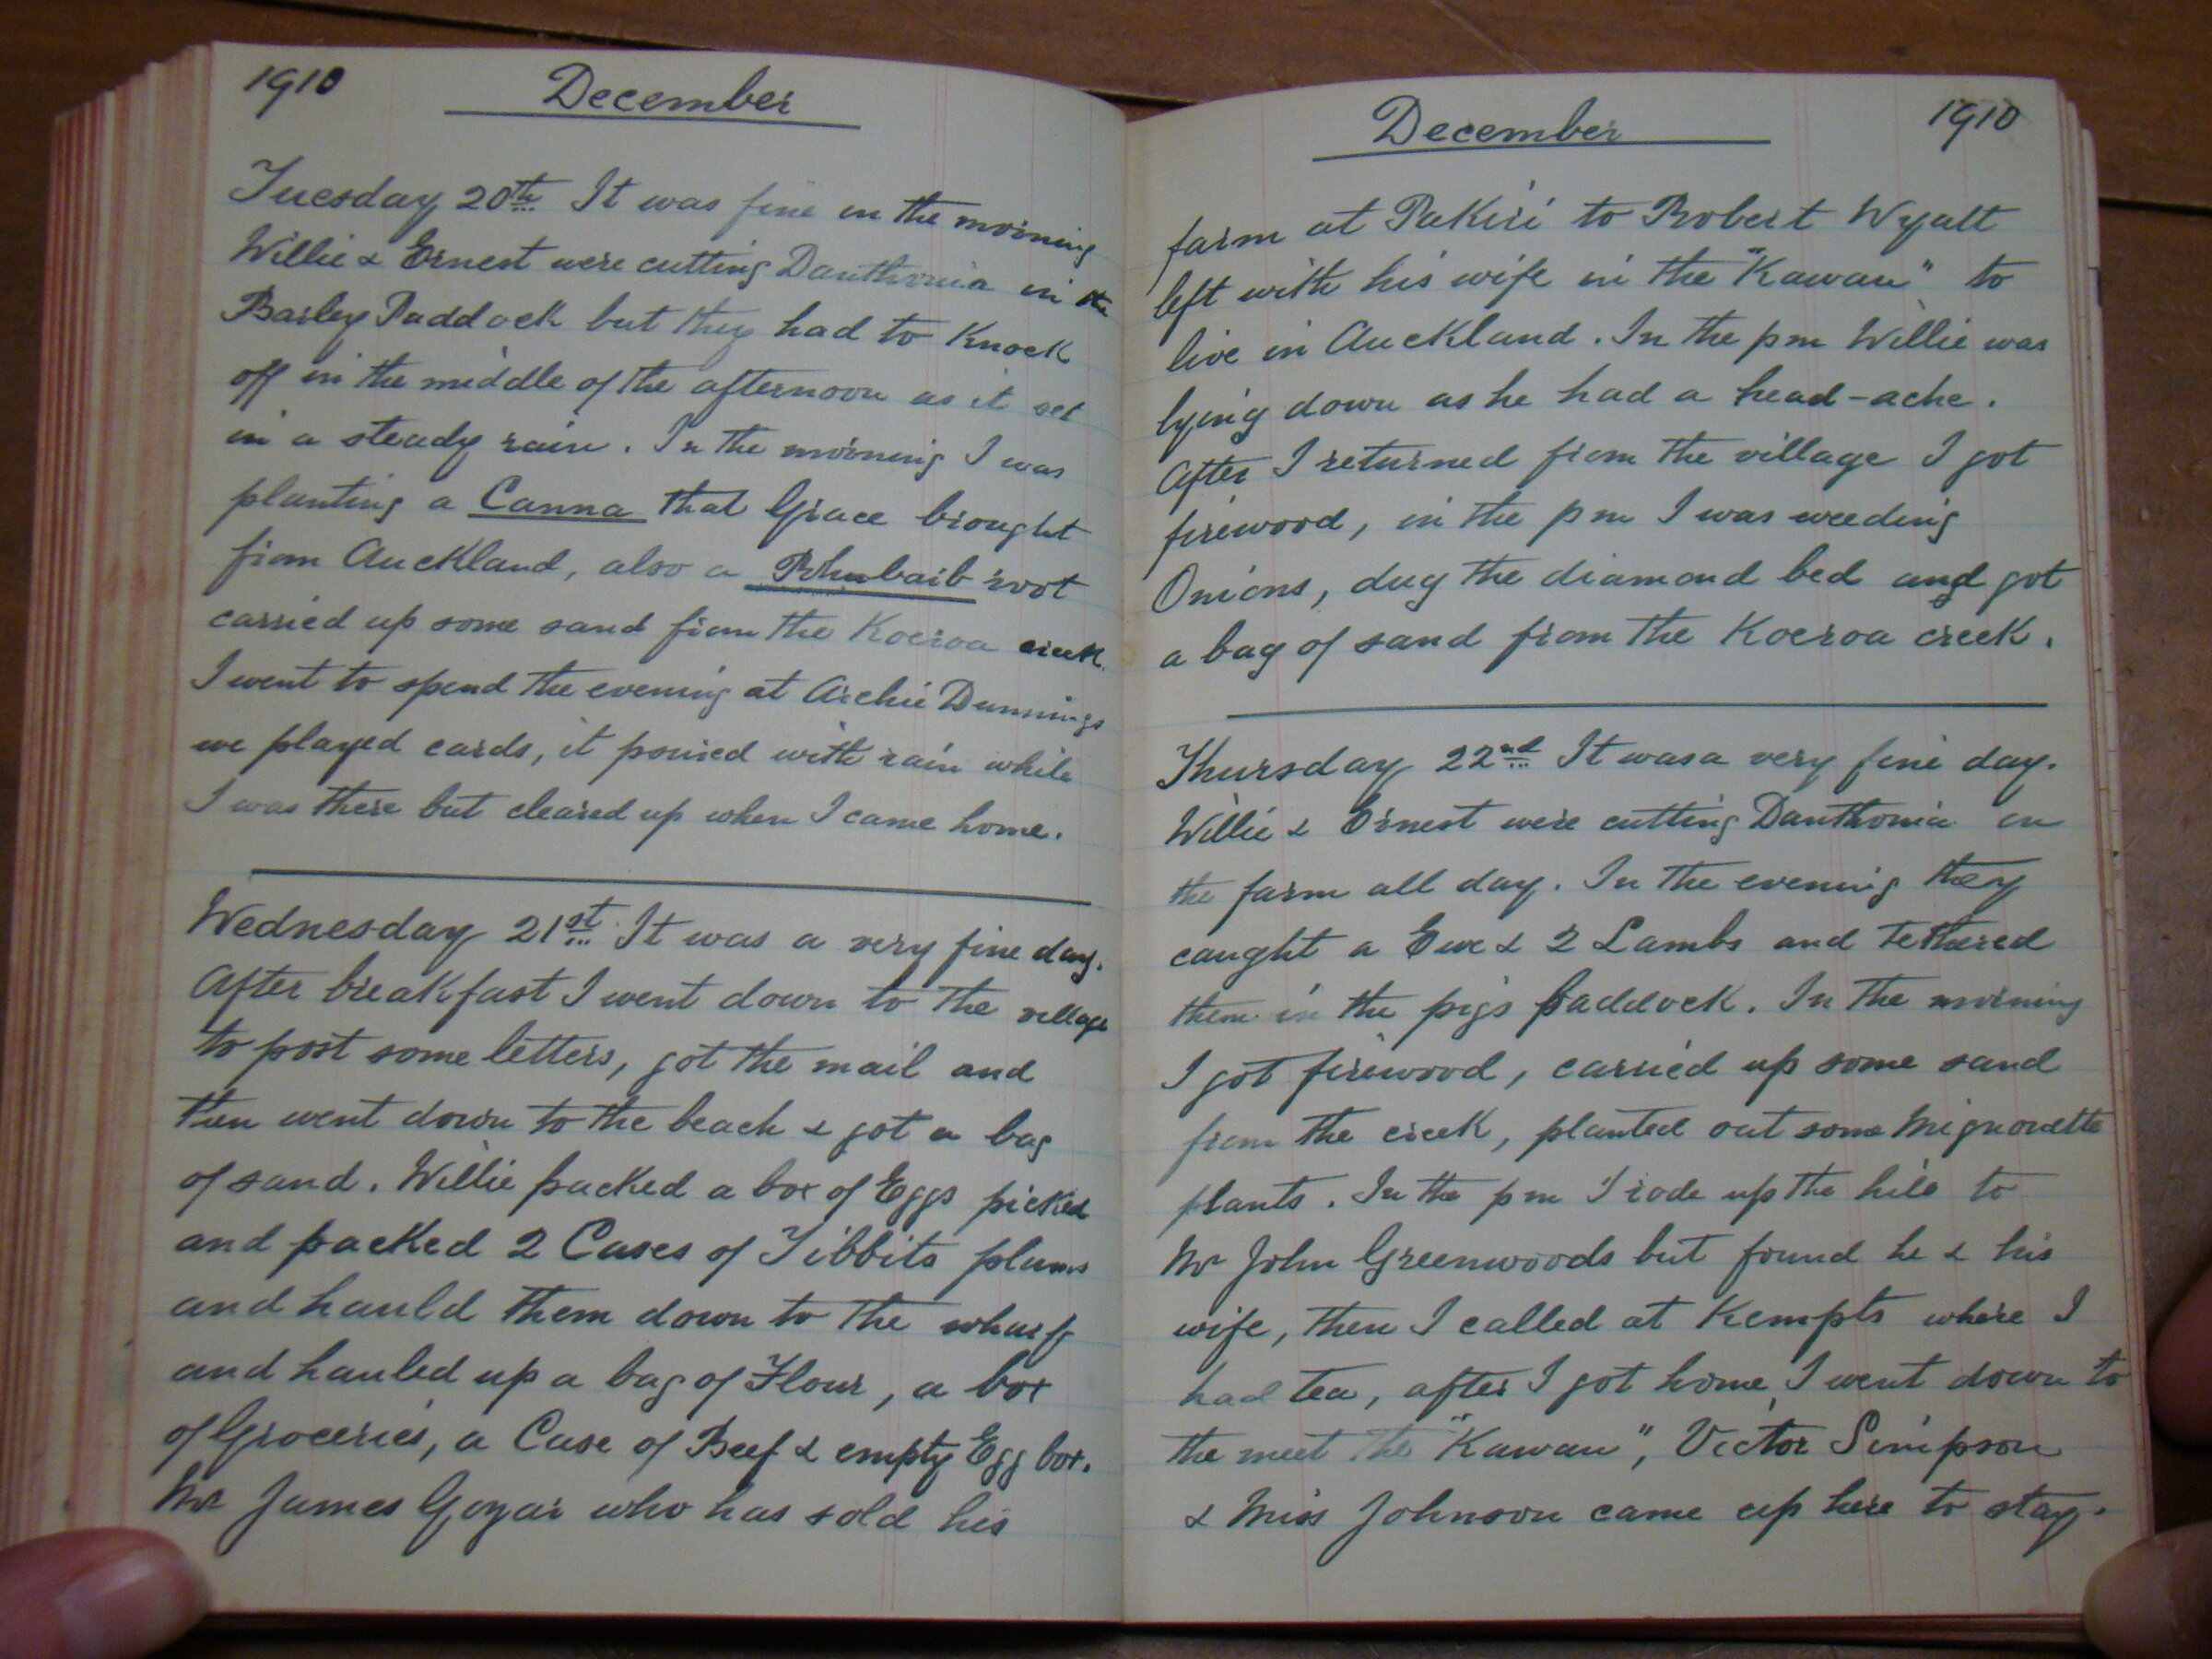 1910 December
Tuesday 20th It was fine in the morning
Willie & Ernest were cutting Danthonia in the
Barley Paddock but they had to Knock
off in the middle of the afternoon as it set
in a steady rain. In the morning I was
planting a Canna that Grace brought
from Auckland, also a Rhubarb root
carried up some sand from the Koeroa creek.
I went to spend the evening at Archie Dunnings
we played cards, it poured with rain while
I was there but cleared up when I came home.
Wednesday 21st It was a very fine day.
After breakfast I went down to the village
to post some letters, got the mail and
then went down to the beach & got a bag
of sand. Willie packed a box of Eggs picked
and packed 2 Cases of Tibbits plums
and hauld them down to the wharf
and hauled up a bag of Flour, a box
of Groceries, a Case of Beef & empty Egg box.
Mr James Gozar who has sold his
December 1910
farm at Pakiri to Robert Wyatt
left with his wife in the "Kawau" to
live in Auckland. In the pm Willie was
lying down as he had a head-ache.
After I returned from the village I got
firewood, in the pm I was weeding
Onions, dug the diamond bed and got
a bag of sand from the Koeroa creek.
Thursday 22nd It was a very fine day.
Willie & Ernest were cutting Danthonia on
the farm all day. In the evening they
caught a Ewe & 2 Lambs and Tethered
them in the pigs paddock. In the morning
I got firewood, carried up some sand
from the creek, planted out some Mignonette
plants. In the pm I rode up the hill to
Mr John Greenwoods but found he & his
wife, then I called at Kempts where I
had tea, after I got home I went down to
the meet the "Kawau", Victor Simpson
& Miss Johnson came up here to stay.